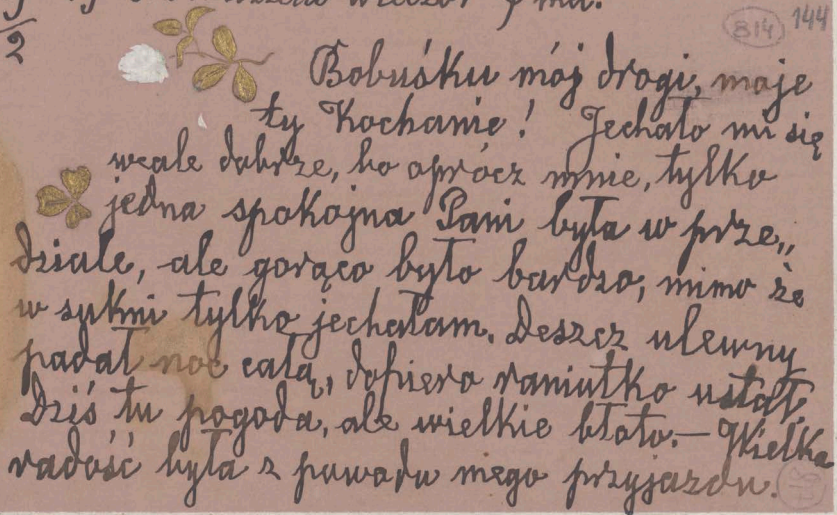 814 144
2
Bobuśku mój drogi, moje
ty Kochanie! Jechało mi się
wcale dobrze, bo oprócz mnie, tylko
jedna spokojna Pani była w prze„
dziale, ale gorąco było bardzo, mimo że
w sukni tylko jechałam. Deszcz ulewny
padał noc całą, dopiero raniutko ustał,
Dziś tu pogoda, ale wielkie błoto.— Wielka
radość była z powodu mego przyjazdu.